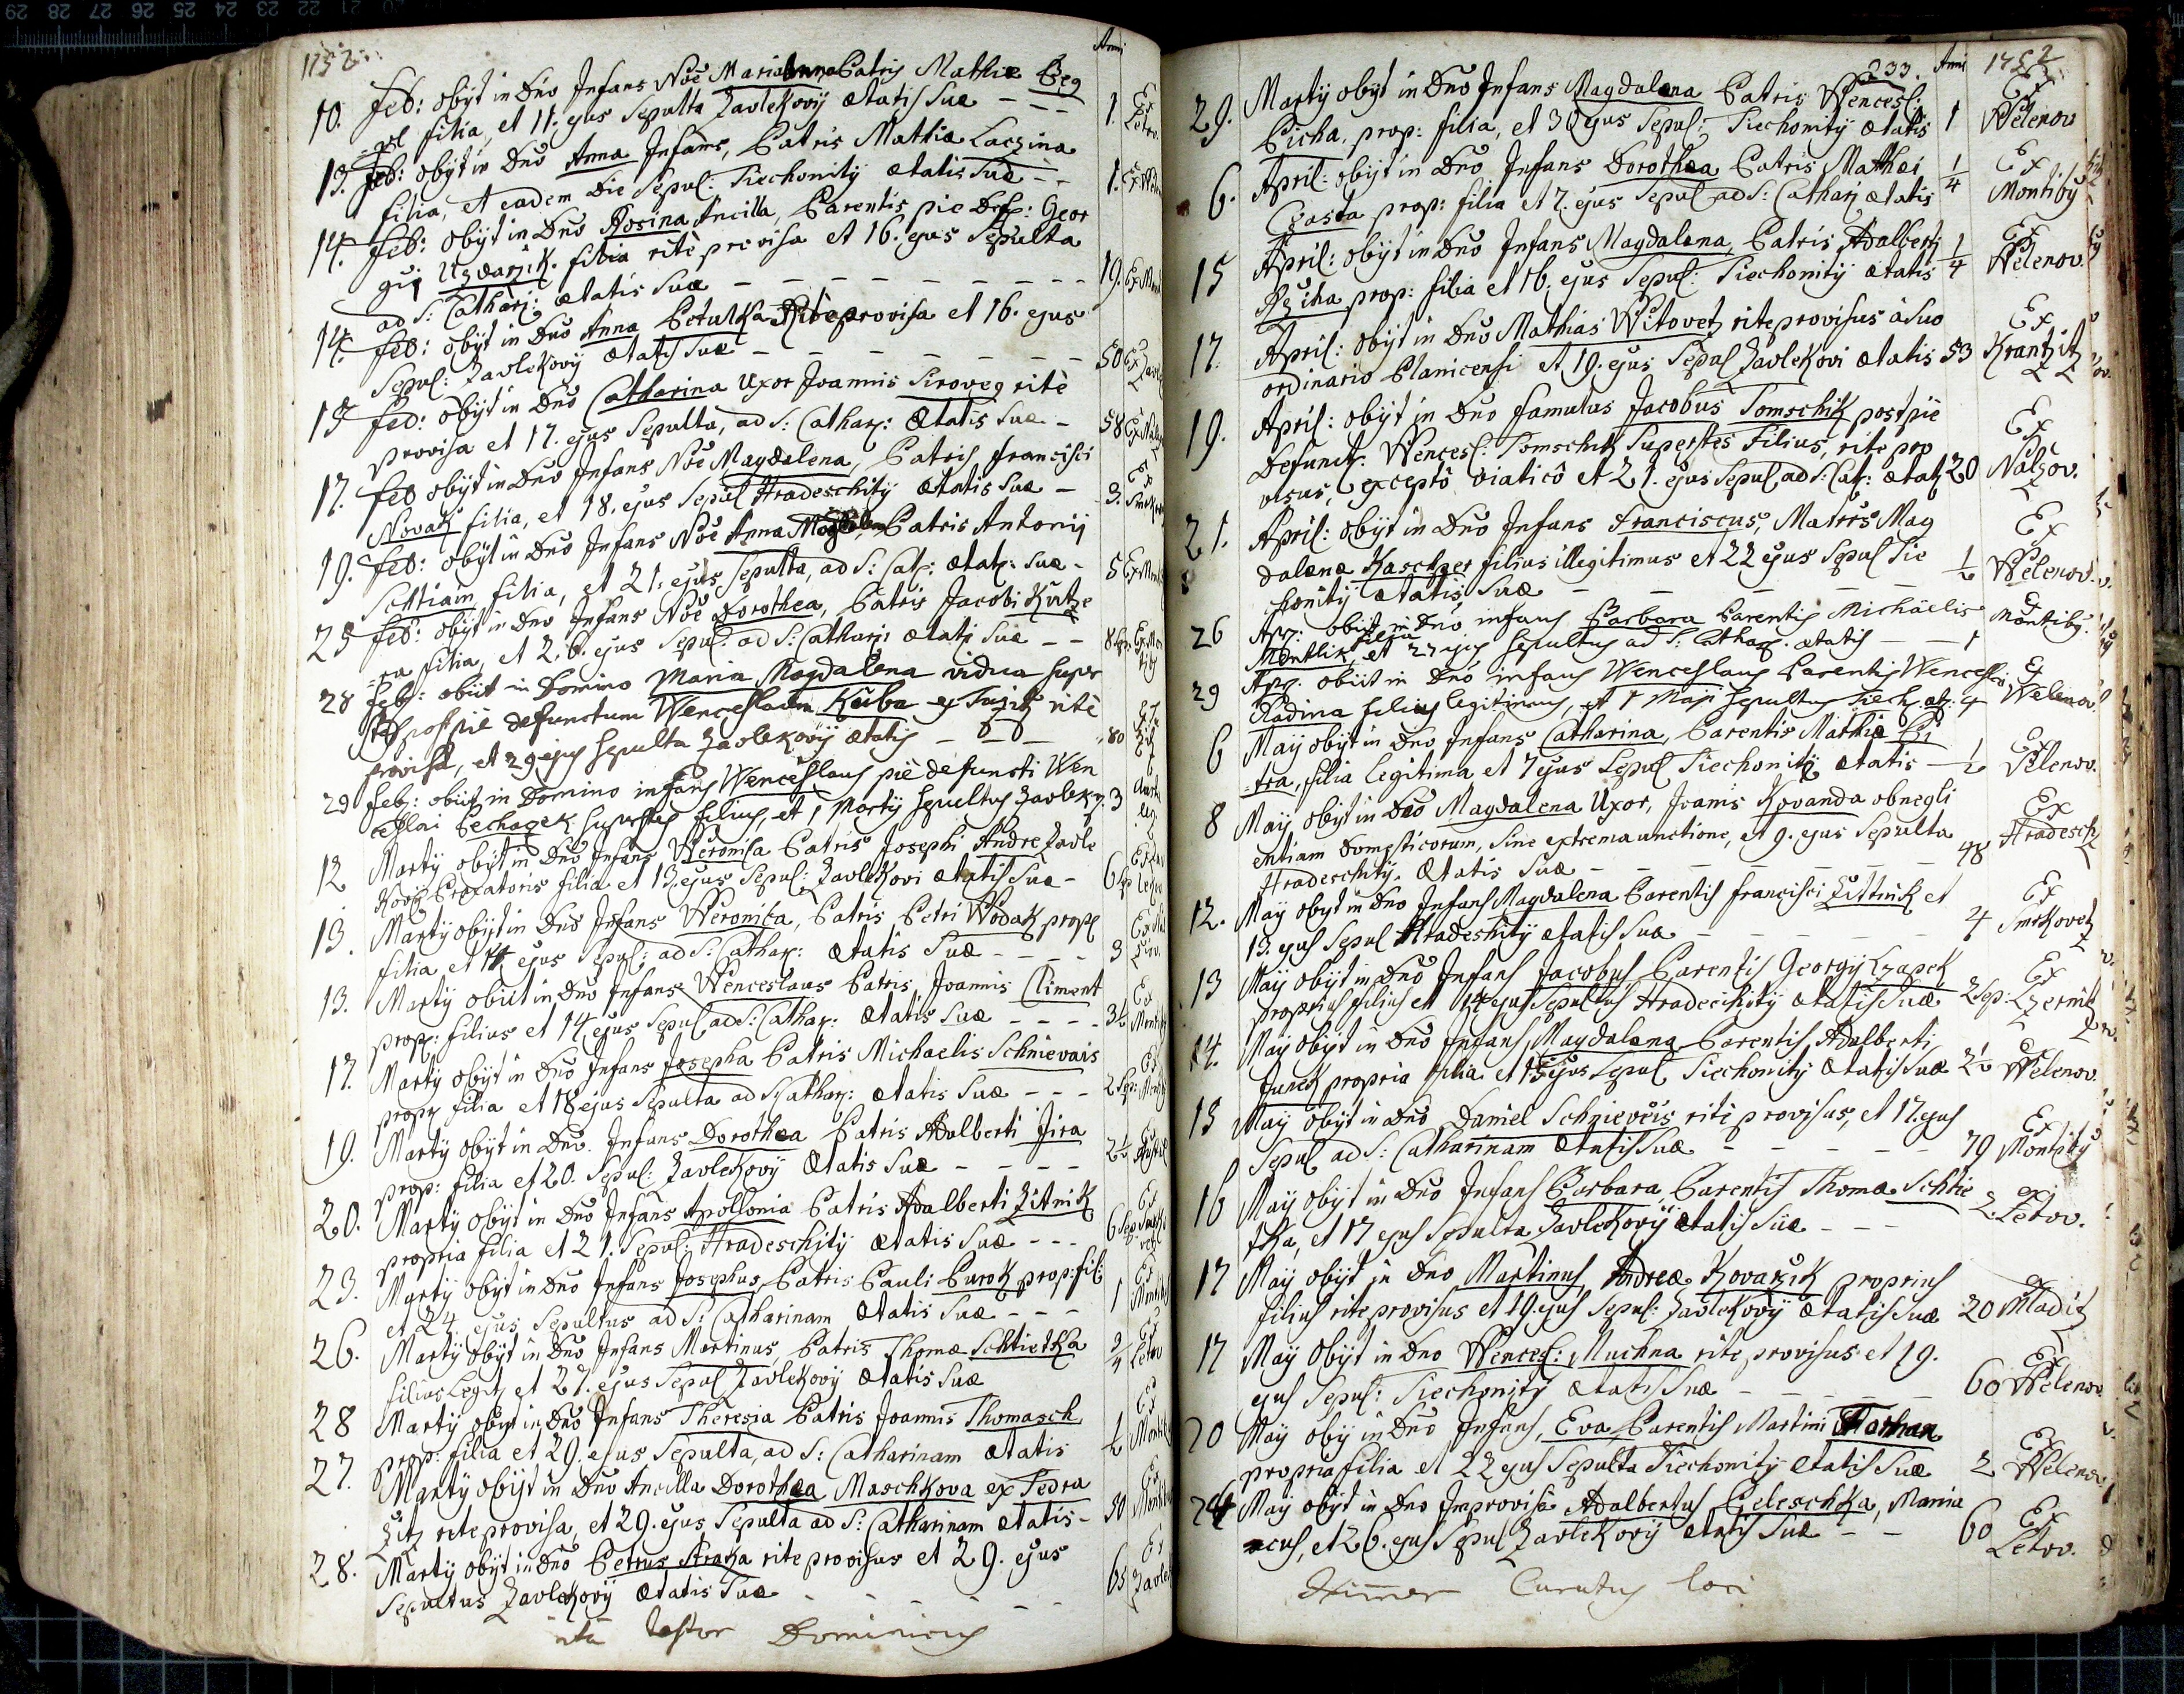 1752
Anni
10. Feb: obijt in Dno Infans Noe Mariana Patris Mathiæ Beg
filia, et 11. ejus Sepulta Zavlekovij ætatis Suæ - - - 1. Ex Letov.
13. Feb: obijt in Dno Anna Infans, Patris Mathiæ Laczina
filia, et eadem Die Sepul: Tiechonitij ætatis Suæ - - 1. Ex
14. Feb: obijt in Dno Rosina Ancilla, Parentis pie Def: Geor
gij Uzdarzik. filia rite provisa et 16. ejus Sepulta
ad S: Cathar: ætatis Suæ - - - - - - - - 19. Ex
14. Feb: obijt in Dno Anna Petulka Rite provisa et 16. ejus
Sepul: Zavlekovij ætatis Suæ - - - - - - - 50 Ex
15 Feb: obijt in Dno Catharina Uxor Joannis Siroveg rite
provisa et 17. ejus Sepulta, ad S: Cathar: Ætatis Suæ - 58 Ex
17. Feb obijt in Dno Infans Noe Magdalena, Patris Francisci Ex
Novak filia, et 18. ejus Sepul Hradeschitij ætatis Suæ - 3.
19. Feb: obijt in Dno Infans Noe Anna Patris Antonij
filia, et 21. ejus Sepulta, ad S: Cat: ætat: Suæ - 5 Ex
25 Feb: obijt in Dno Infans Noe Dorothea, Patris Jacobi Kutze
ra filia, et 26. ejus Sepul: ad S: Cathar: ætat Suæ - - 8
28 Feb: obiit in Domino Maria Magdalena vidua super
stes post pie defunctum Wenceslaum Kuba ex rite
provisa, et 29 ejus sepulta Zavlekovij ætatis - - - 80
29 Feb: obiit in Domino infans Wenceslaus pie defuncti Wen
ceslai Pechacek superstes filius, et 1 Martij sepultus Zavlek. 3
12 Martij obijt in Dno Infans Weronica Patris Josephi Andre Zavle
Kovij filia et 13. ejus Sepul: Zavlekovi ætatis Suæ - 6
13. Martij obijt in Dno Infans Weronica, Patris Petri Wodak prop
filia et 14 ejus Sepul: ad S: Cathar: ætatis Suæ - - - - 3
13. Martij obiit in Dno Infans Wenceslaus Patris Joannis Climent Ex
prop: filius et 14 ejus Sepul ad S: Cathar: ætatis Suæ - - - - 3½
17. Martij obijt in Dno Infans Josepha Patris Michaelis Schnievais Ex
prop filia et 18 ejus Sepulta ad S: Cathar: ætatis Suæ - - - 2 Sep:
19. Martij obijt in Dno. Infans Dorothea Patris Adalberti Jira Ex
prop: filia et 20. Sepul: Zavlekovij Ætatis Suæ - - - - 2½
20. Martij obijt in Dno Infans Apollonia Patris Adalberti Zitnik Ex
propria filia et 21. Sepul: Hradeschitij ætatis Suæ - - - 6
23. Martij obijt in Dno Infans Josephus, Patris Pauli Turok prop: fil: Ex
et 24 ejus Sepultus ad S: Catharinam ætatis Suæ - - - 1
26. Martij obijt in Dno Infans Martinus, Patris Thomæ Schtietka Ex
filius Legit et 27. ejus Sepul Zavlekovij ætatis Suæ ¾ Letov
28 Martij obijt in Dno Infans Theresia Patris Joannis Thomasch Ex
prop: filia et 29. ejus Sepulta, ad S: Catharinam ætatis ½
27. Martij obijt in Dno Ancilla Dorothea Maschkova ex Tedra Ex
zitz rite provisa, et 29. ejus Sepulta ad S: Catharinam ætatis - 30
28. Martij obijt in Dno Petrus Straka rite provisus et 29. ejus Ex
Sepultus Zavlekovij ætatis Suæ - - - - - - 65 Zavle
ita testor Dominicus
233. Anni 1752
29. Martij obijt in Dno Infans Magdalena Patris Wencesl: Ex
Picha, prop: filia, et 30 ejus Sepul: Tiechonitij ætatis 1 Welenov
6. April: obijt in Dno Infans Dorothæa Patris Mathæi Ex
Czasta prop: filia et 7. ejus Sepul ad S: Cathar: ætatis ¼ Montiby
15 April: obijt in Dno Infans Magdalena, Patris Adalberti Ex
Rziha prop: filia et 16. ejus Sepul: Tiechonitij ætatis ¼ Welenov.
17. April: obijt in Dno Mathias Witovetz rite provisus a Suo Ex
ordinario Planicensi et 19. ejus Sepul Zavlekovi ætatis 53 Krantzitz
19. April: obijt in Dno famulus Jacobus Tomschik post pie Ex
Defunct: Wencesl: Tomschik Superstes Filius, rite pro
visus, excepto viatico et 21. ejus Sepul ad S: Cat: ætat 20 Nalzov.
21. April: obijt in Dno Infans Franciscus, Matris Mag Ex
dalenæ Kaschper filius illegitimus et 22 ejus Sepul Tie
honitij ætatis Suæ - - - - ½ Welenov.
26 Apr: obiit in Dno infans Barbara Parentis Michäelis Ex
Mentlik, filia et 27 ejus sepultus ad S. Cathar. ætatis - - 1 Montiby.
29 Apr. obiit in Dno infans Wenceslaus Parentis Wenceslai Ex
Kladina filius legitimus, et 1 Maji sepultus Tiech. æt: 4 Welenov.
6 Maij obijt in Dno Infans Catharina, Parentis Mathiæ Pi Ex
tra, filia legitima et 7 ejus Sepul Tiechonitij ætatis - ½ Velenov.
8 Maij obijt in Dno Magdalena Uxor, Joanis Kovanda ob negli Ex
entiam Domesticorum, Sine extrema unctione, et 9. ejus Sepulta Hradesch
Hradeschitij. Ætatis Suæ - - - - 48
12. Maij obijt in Dno Infans Magdalena Parentis Francisci Zittnik et Ex
13. ejus Sepul Hradeshitij ætatis Suæ - - - - 4 Smrkovetz
13 Maij obijt in Dno Infans Jacobus Parentis Georgij Czapek Ex
proprius filius et 14 ejus Sepultus Hradeschitij ætatis Suæ 2 Sep: Czernitz
14. Maij obijt in Dno Infans, Magdalena Parentis, Adalberti Ex
Junek propria filia et 15 ejus Sepul Tiechonitij ætatis Suæ 2½ Welenov.
15 Maij obijt in Dno Daniel Schnieveis rite provisus, et 17. ejus Ex
Sepul ad S: Catharinam ætatis Suæ - - - - - 79 Montiby
16 Maij obijt in Dno Infans Barbara, Parentis Thomæ Schtie ex
tka, et 17 ejus Sepulta Zavlekovij ætatis Suæ - - - 2. Letov.
17 Maij obijt in Dno Martinus, Andreæ Kovarzik proprius ex
filius rite provisus et 19. ejus Sepul: Zavlekovij ætatis Suæ 20 Mladitz
17 Maij Obijt in Dno Wencesl: Muchna rite, provisus et 19. Ex
ejus Sepul: Tiechonitij ætatis Suæ - - - - - 60 Welenov.
20 Maij obij in Dno Infans, Eva Parentis Martini Ex
propria filia et 22 ejus Sepulta Tiechonitij ætatis Suæ 2 Welenov.
24 Maij obijt in Dno Improvise Adalbertus Peleschka, Mania Ex
cus, et 26. ejus Sepul Zavlekovij ætatis Suæ - - 60 Letov.
Curatus loci